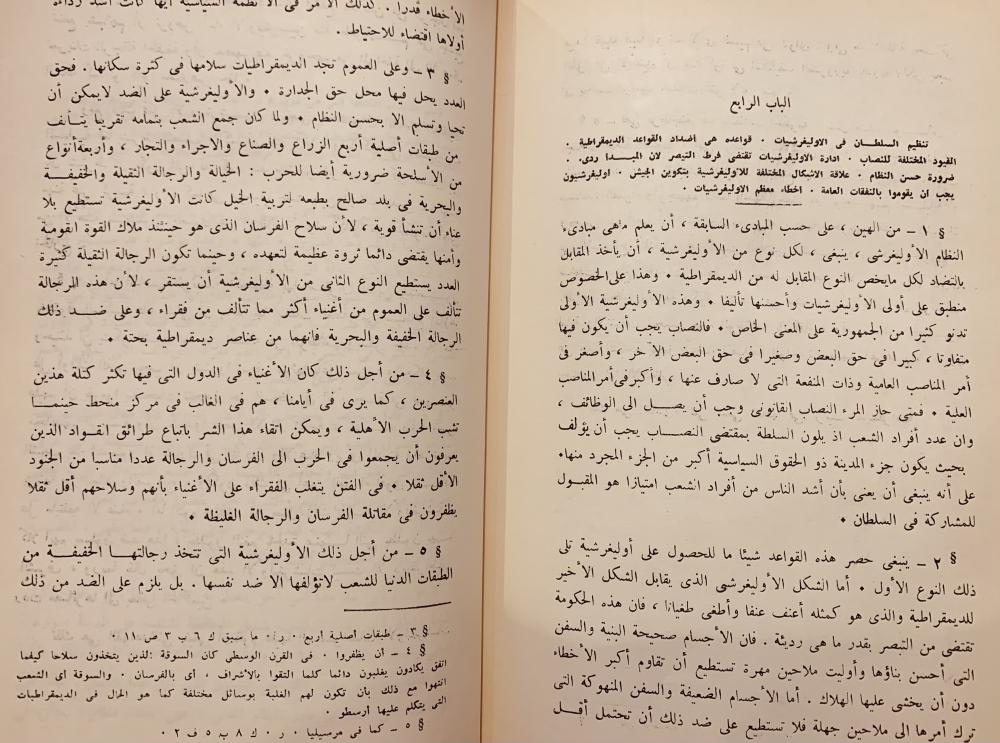 الباب الرابع
تنظيم السلطان فى الاوليغرشيات ٠ قواعده هى أضداد القواعد الديمقراطية ٠
القيود المختلفة للنصاب ٠ ادارة الاوليغرشيات تقتضى فرط التبصر لان المبدا ردى٠
ضرورة حسن النظام ٠ علاقة الاشكال المختلفة للاوليغرشية بتكوين الجيش ٠ اوليغرشيون
يجب ان يقوموا بالنفقات العامة ٠ اخطاء معظم الاوليغرشيات ٠
§ ١ – من الهين ، على حسب المبادىء السابقة ، أن يعلم ماهى مبادىء
النظام الأوليغرشى ، ينبغى ، لكل نوع من الأوليغرشية ، أن يأخذ المقابل
بالتضاد لكل مايخص النوع المقابل له من الديمقراطية ٠ وهذا على الخصوص
منطبق على أولى الأوليغرشيات وأحسنها تأليفا ٠ وهذه الأوليغرشية الأولى
تدنو كثيرا من الجمهورية على المعنى الخاص ٠ فالنصاب يجب أن يكون فيها
متفاوتا ، كبيرا فى حق البعض وصغيرا فى حق البعض الآخر ، وأصغر فى
أمر المناصب العامية وذات المنفعة التى لا صارف عنها ، وأكبر فى أمر المناصب
العلية ٠ فمتى حاز المرء النصاب القانونى وجب أن يصل الى الوظائف ،
وان عدد أفراد الشعب اذ يلون السلطة بمقتضى النصاب يجب أن يؤلف
بحيث يكون جزء المدينة ذو الحقوق السياسية أكبر من الجزء المجرد منها٠
على أنه ينبغى أن يعنى بأن أشد الناس من أفراد الشعب امتيازا هو المقبول
للمشاركة فى السلطان ٠
§ ٢ – ينبغى حصر هذه القواعد شيئا ما للحصول على أوليغرشية تلى
ذلك النوع الأول ٠ أما الشكل الأوليغرشى الذى يقابل الشكل الأخير
للديمقراطية والذى هو كمثله أعنف عنفا وأطغى طغيانا ، فان هذه الحكومة
تقتضى من التبصر بقدر ما هى رديئة . فان الأجسام صحيحة البنية والسفن
التى أحسن بناؤها وأوليت ملاحين مهرة تستطيع أن تقاوم أكبر الأخطاء
دون أن يخشى عليها الهلاك . أما الأجسام الضعيفة والسفن المنهوكة التى
ترك أمرها الى ملاحين جهلة فلا تستطيع على ضد ذلك أن تحتمل أقل
الأخطاء قدرا . كذلك الأمر فى الأنظمة السياسية أيها كانت أشد رداءة
أولاها اقتضاء للاحتياط .
§ ٣ – وعلى العموم تجد الديمقراطيات سلامها فى كثرة سكانها . فحق
العدد يحل فيها محل حق الجدارة ٠ والأوليغرشية على الضد لايمكن أن
تحيا وتسلم الا بحسن النظام ٠ ولما كان جمع الشعب بتمامه تقريبا يتألف
من طبقات أصلية أربع الزراع والصناع والاجراء والتجار ، وأربعة أنواع
من الأسلحة ضرورية أيضا للحرب : الخيالة والرجالة الثقيلة والخفيفة
والبحرية فى بلد صالح بطبعه لتربية الخيل كانت الأوليغرشية تستطيع بلا
عناء أن تنشأ قوية ، لأن سلاح الفرسان الذى هو حينئذ ملاك القوة القومية
وأمنها يقتضى دائما ثروة عظيمة لتعهده ، وحينما تكون الرجالة الثقيلة كثيرة
العدد يستطيع النوع الثانى من الأوليغرشية أن يستقر ، لأن هذه الرجالة
تتألف على العموم من أغنياء أكثر مما تتألف من فقراء ، وعلى ضد ذلك
الرجالة الخفيفة والبحرية فانهما من عناصر ديمقراطية بحتة ٠
§ ٤ – من أجل ذلك كان الأغنياء فى الدول التى فيها تكثر كتلة هذين
العنصرين ، كما يرى فى أيامنا ، هم فى الغالب فى مركز منحط حينما
تشب الحرب الأهلية ، ويمكن اتقاء هذا الشر باتباع طرائق القواد الذين
يعرفون أن يجمعوا فى الحرب الى الفرسان والرجالة عددا مناسبا من الجنود
الأقل ثقلا ٠ فى الفتن يتغلب الفقراء على الأغنياء بأنهم وسلاحهم أقل ثقلا
يظفرون فى مقاتلة الفرسان والرجالة الغليظة ٠
§ ٥ – من أجل ذلك الأوليغرشية التى تتخذ رجالتها الخفيفة من
الطبقات الدنيا للشعب لاتؤلفها الا ضد نفسها . بل يلزم على الضد من ذلك
§ ٣ – طبقات أصلية أربع ٠ ر٠ ما سبق ك ٦ ب ٣ ص ١١ ٠
§ ٤ – أن يظفروا ٠ فى القرن الوسطى كان السوقة الذين يتخذون سلاحا كيفما
اتفق يكادون يغلبون دائما كلما التقوا بالأشراف ، أى بالفرسان ٠ والسوقة أى الشعب
انتهوا مع ذلك بأن تكون لهم الغلبة بوسائل مختلفة كما هو الحال فى الديمقراطيات
التى يتكلم عليها أرسطو ٠
§ ٥ – كما فى مرسيليا ٠ ر ٠ ك ٨ ب ٥ ف ٢ ٠